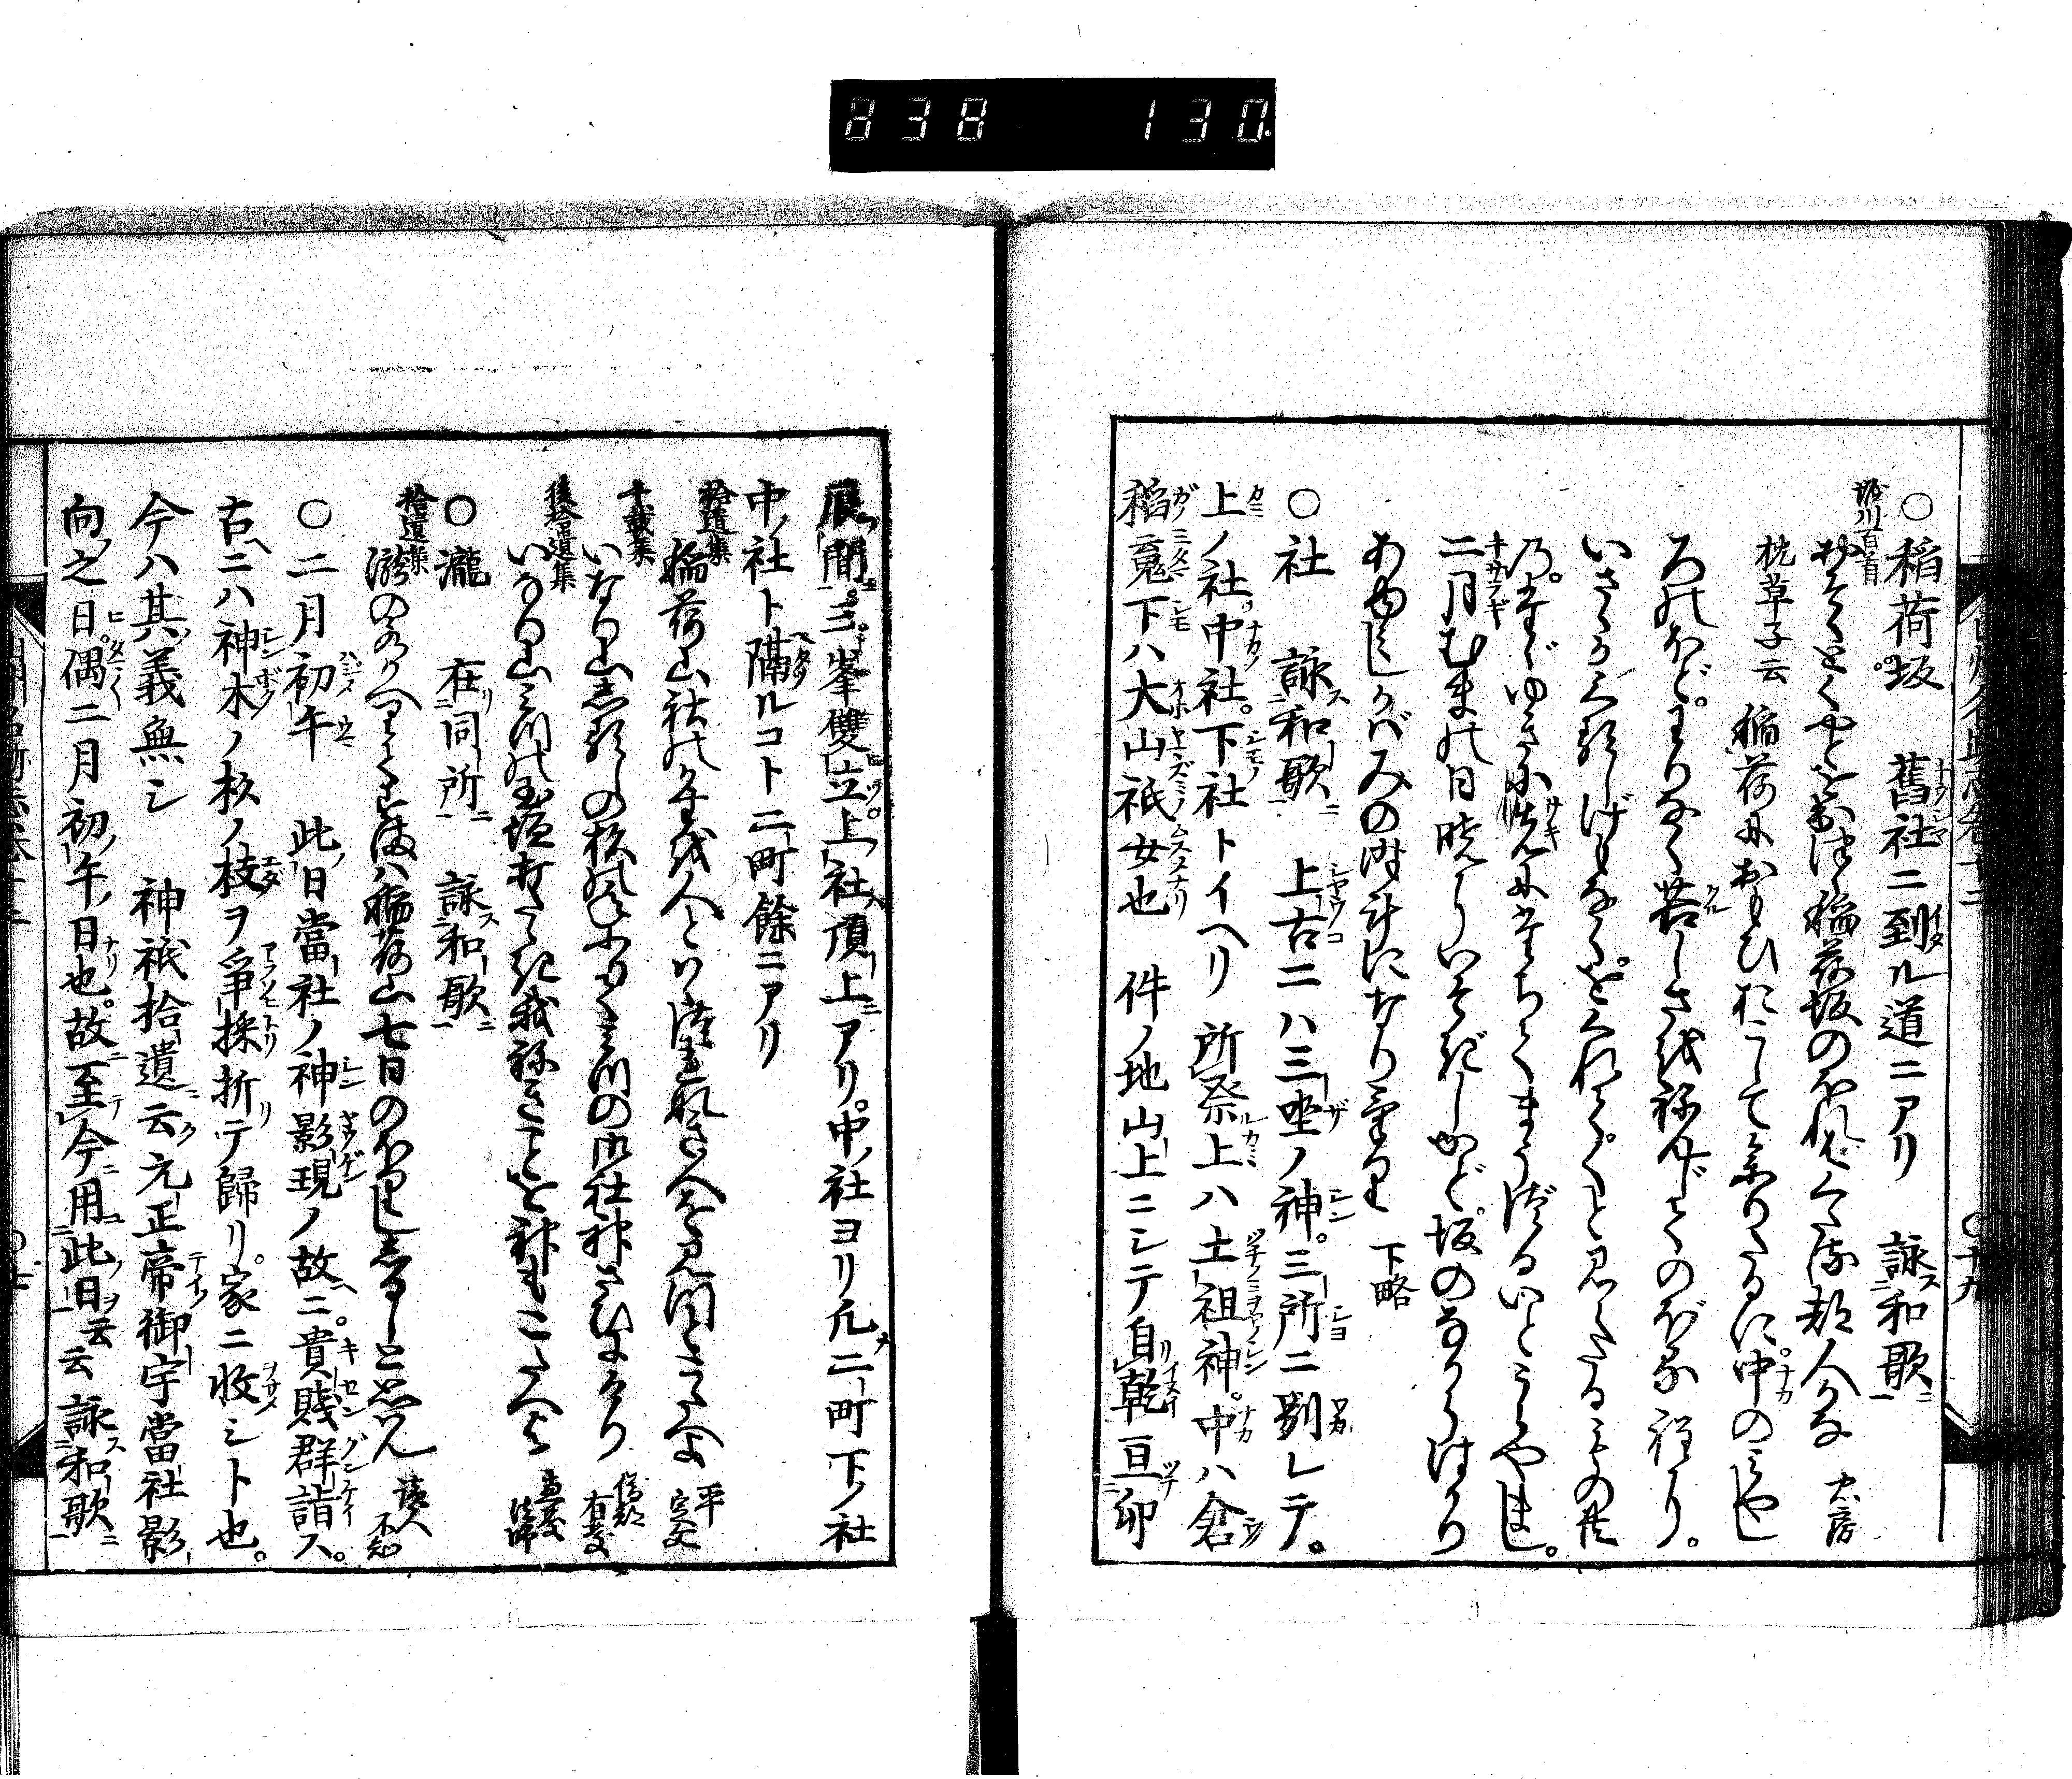 838 130
○稲荷坂 舊社ニ到ル道ニアリ 詠和歌
堀川百首
枕草子云 稲荷におもひおこして参りたるに。中のみやし
ろのほど。わりなく苦しきを念じてのぼる程に。
いさゝかくるしげもなく。をくれてくと見えたるものど
もの。たゞゆきに先にたちてまうづるいとうらやまし。
二月むまの日暁にいそぎしかど。坂のなからばかり
あゆみしかばみの時計になりにけり 下略
○社 詠和歌 上古ニハ三坐ノ神。三所ニ別レテ。
上ノ社。中社。下社トイヘリ 所祭上ハ土祖神。中ハ倉
稲䰠下ハ大山祇女也 件ノ地山上ニシテ自乾亘卯
辰間。三峯雙立上社頂上ニアリ。中ノ社ヨリ凡二町下ノ社
中ノ社ト隔ルコト二町餘ニアリ
拾遺集
稲荷山社の数を人とはゞつれなき人をみつとこたへよ 平定文
千載集
いなり山しるしの杉の年ふりてみつの御社神さびにけり 僧都有慶
後拾遺集
いなり山みつの玉垣打たゝき我ねぎことを神もこたへよ 恵慶法師
○瀧 在同所 詠和歌
拾遺集
瀧の水かへりてすまば稲荷山七日のぼれるしるしと思はん 読人不知
○二月初午 此日當社ノ神影現ノ故ニ。貴賤群詣ス。
古ニハ神木ノ杉ノ枝ヲ爭採折テ歸リ。家ニ收シト也。
今ハ其義無シ 神祇拾遺云元正帝御宇當社影
向之日。偶二月初午日也。故至今用此日云云 詠和歌